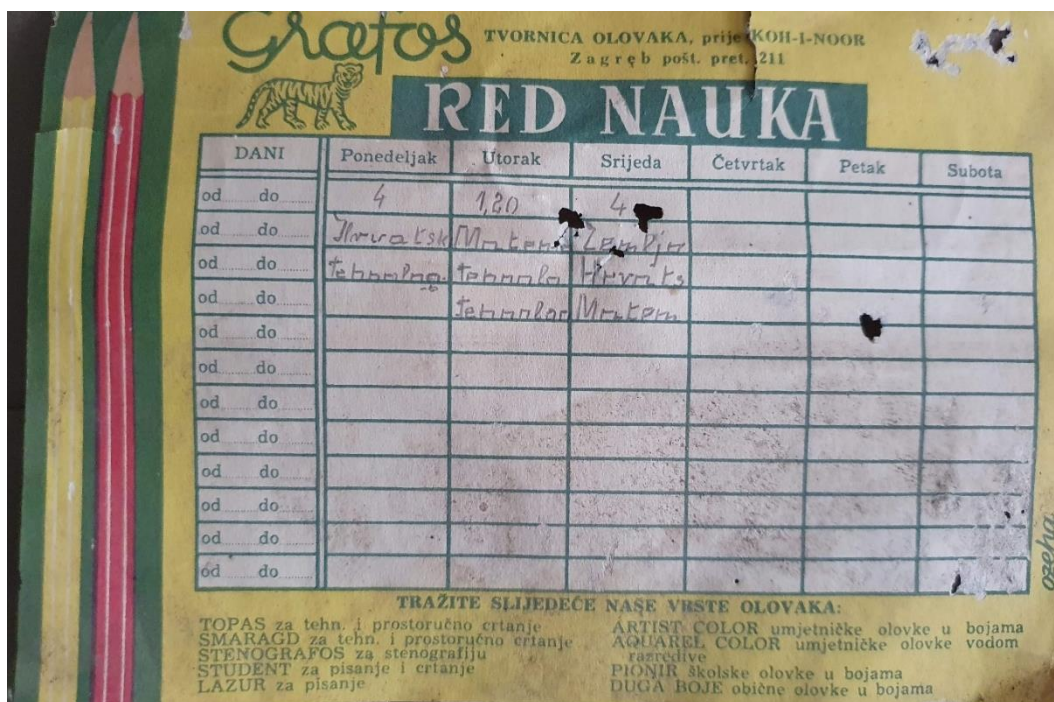 Grafos
TVORNICA OLOVAKA, prije KOH-I-NOOR
Zagreb pošt. pret. 211
RED NAUKA
DANI Ponedeljak Utorak Srijeda Četvrtak Petak Subota
od do 4 1,20 4
od do Hrvatsk Matem Zemlja
od do tehnolog. tehnolo Hrvats
od do Tehnolog Matem
od do
od do
od do
od do
od do
od do
od do
od do
TRAŽITE SLIJEDEĆE NAŠE VRSTE OLOVAKA:
TOPAS za tehn. i prostoručno crtanje
SMARAGD za tehn. i prostoručno crtanje
STENOGRAFOS za stenografiju
STUDENT za pisanje i crtanje
LAZUR za pisanje
ARTIST COLOR umjetničke olovke u bojama
AQUAREL COLOR umjetničke olovke vodom
razredive
PIONIR školske olovke u bojama
DUGA BOJE obične olovke u bojama
ozeha